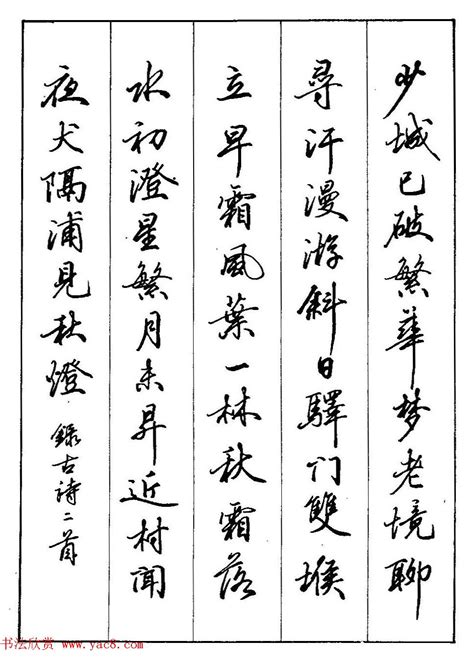 少城已破繁華梦老境聊
尋汗漫游斜日驛门雙堠
立早霜風葉一林秋霜落
水初澄星繁月未昇近村聞
夜犬隔浦見秋燈 錄古詩二首
书法欣赏 www.yac8.com